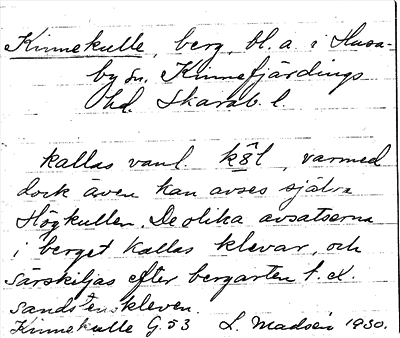 Kinnekulle, berg, bl. a. i Husa-
by sn. Kinnefjärdings
hd. Skarab. l.
kallas vanl. , varmed
dock även kan avses själva
Högkullen. De olika avsatserna
i berget kallas klevar, och
särskiljas efter bergarten t. ex.
sandstenskleven.
Kinnekulle G. 53 L. Madsén 1930.